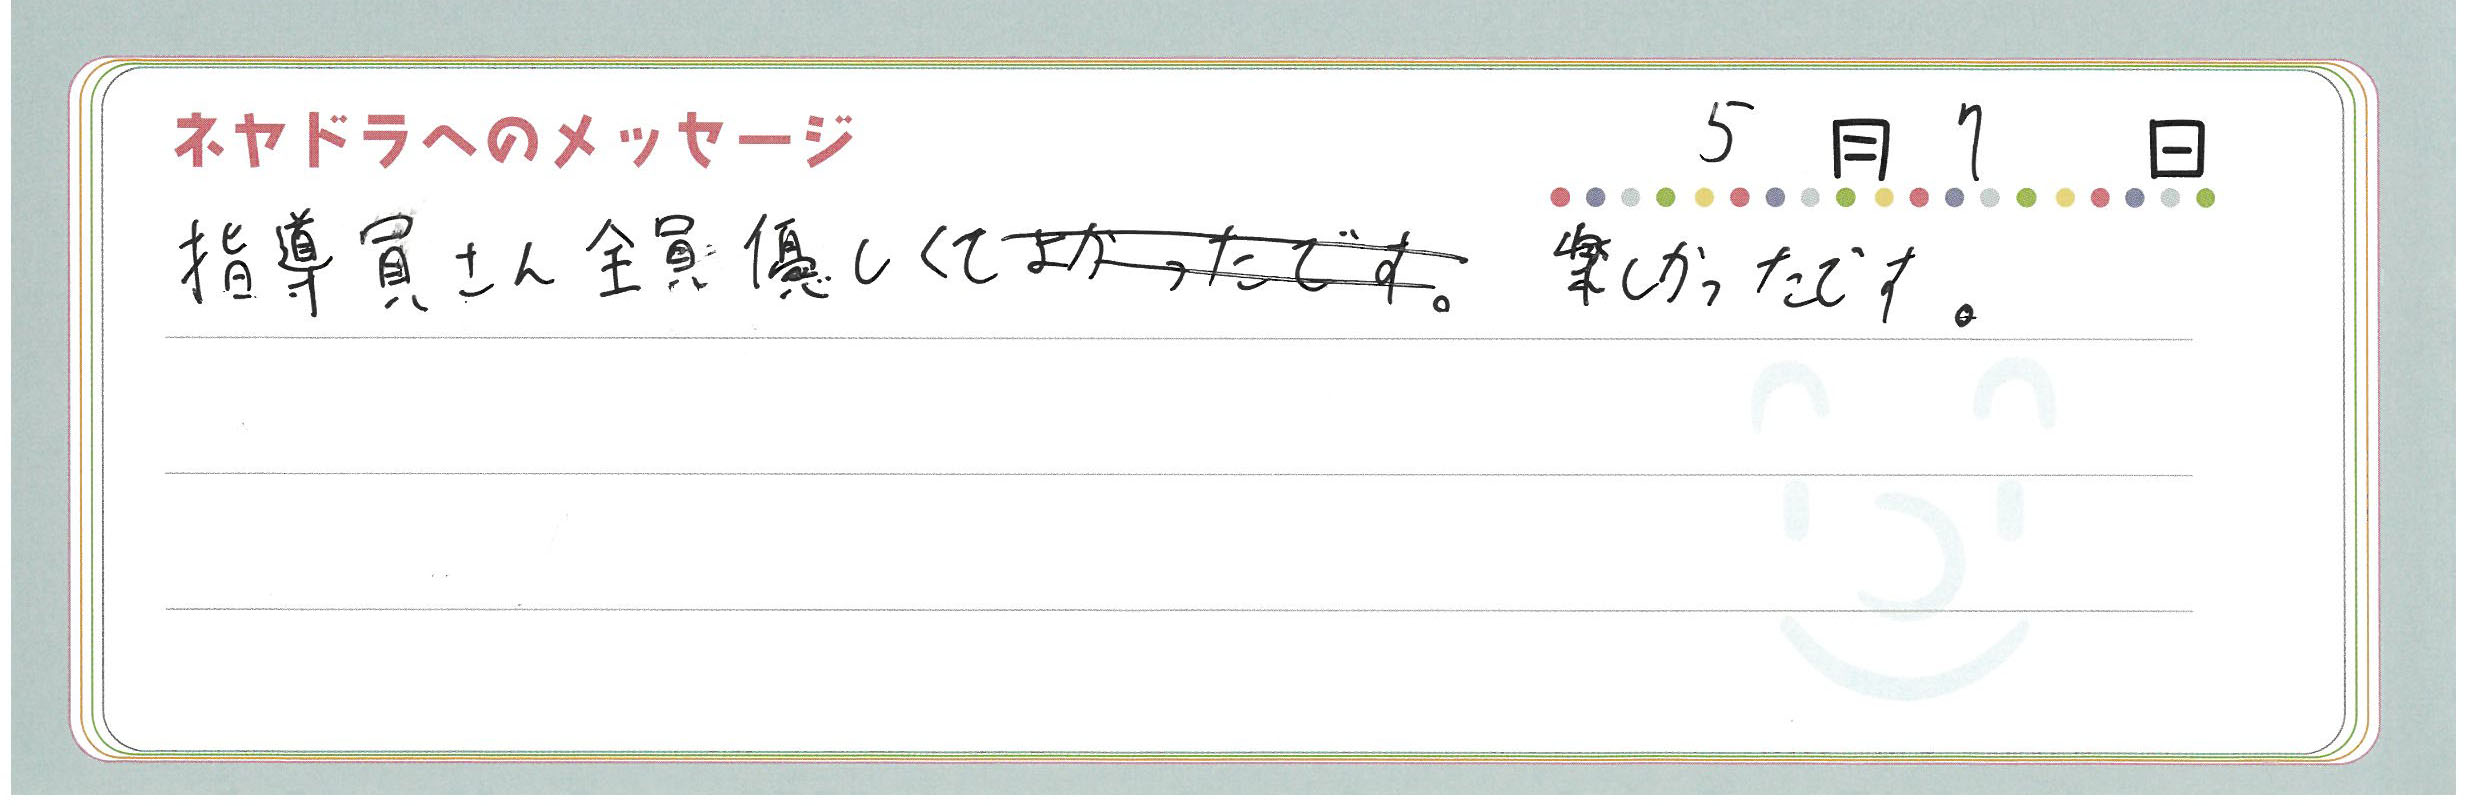 ネヤドラへのメッセージ 5月7日
指導員さん全員優しくてよかったです。 楽しかったです。